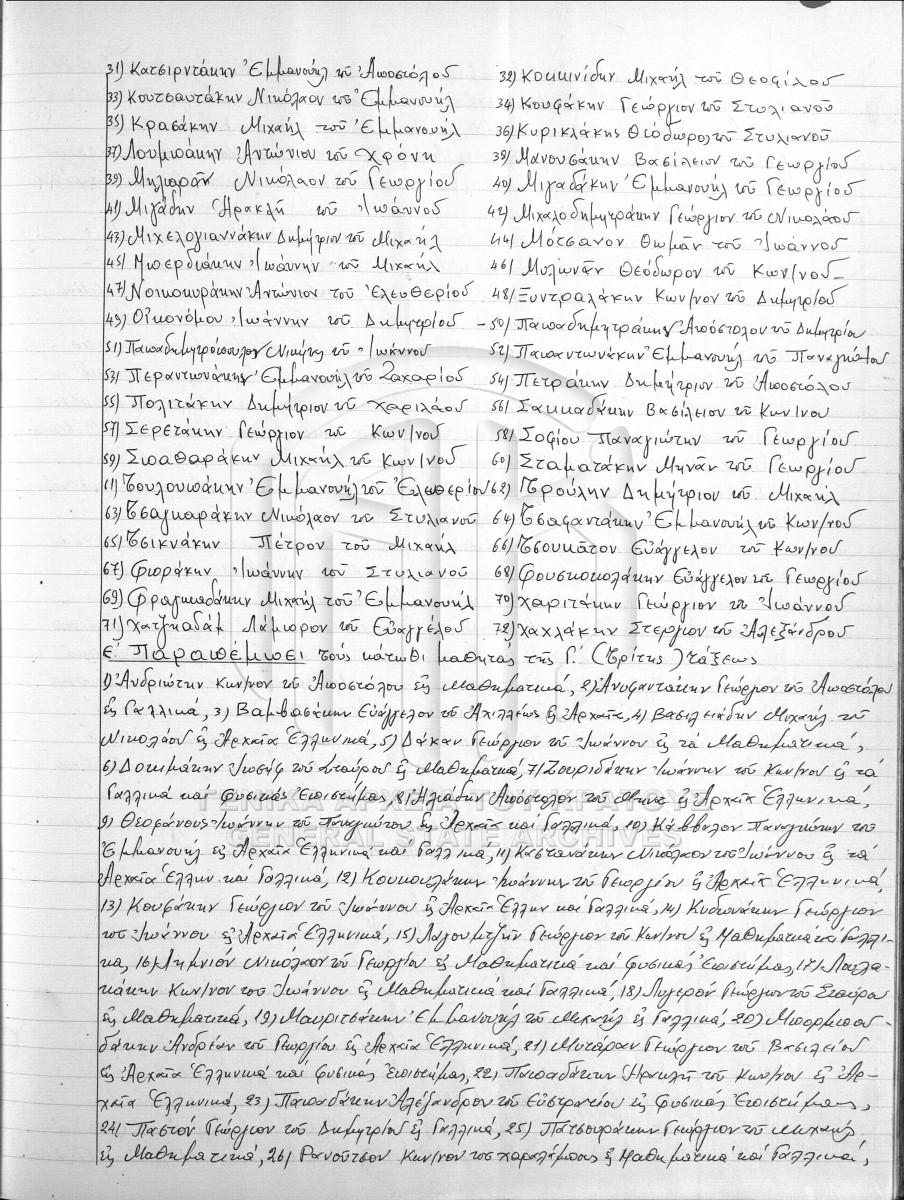 31) Κατσιρντάκην Ἐμμανουήλ τοῦ Ἀποστόλου 32) Κοκκινίδην Μιχαήλ τοῦ Θεοφίλου
33) Κουτσαυτάκην Νικόλαον τοῦ Ἐμμανουήλ 34) Κουφάκην Γεώργιον τοῦ Στυλιανοῦ
35) Κρασάκην Μιχαήλ τοῦ Ἐμμανουήλ 36) Κυρικλάκης Θεόδωρος τοῦ Στυλιανοῦ
37) Λουμπάκην Ἀντώνιον τοῦ Χρόνη 38) Μανουσάκην Βασίλειον τοῦ Γεωργίου
39) Νικόλαον τοῦ Γεωργίου 40) Μιγαδάκην Ἐμμανουήλ τοῦ Γεωργίου
41) Μιγάδην Ἡρακλῆ τοῦ Ἰωάννου 42) Μιχαλοδημητράκην Γεώργιον τοῦ Νικολάου
43) Μιχελογιαννάκην Δημήτριον τοῦ Μιχαήλ 44) Μότσανον Θωμᾶν τοῦ Ἰωάννου
45) Μπερδιάκην Ἰωάννην τοῦ Μιχαήλ 46) Μυλωνᾶν Θεόδωρον τοῦ Κων/νου
47) Νοικοκυράκην Ἀντώνιον τοῦ Ἐλευθερίου 48) Ξυντραλάκην Κων/νον τοῦ Δημητρίου
49) Οἰκονόμου Ἰωάννην τοῦ Δημητρίου - 50) Παπαδημητράκης Ἀπόστολον τοῦ Δημητρίου
51) Παπαδημητρόπουλος τοῦ Ἰωάννου 52) Παπαντωνάκην Ἐμμανουήλ τοῦ Παναγιώτου
53) Περαντωνάκης Ἐμμανουήλ τοῦ Ζαχαρίου 54) Πετράκην Δημήτριον τοῦ Ἀποστόλου
55) Πολιτάκην Δημήτριον τοῦ Χαριλάου 56) Σακκαδάκην Βασίλειον τοῦ Κων/νου
57) Σερετάκην Γεώργιον τοῦ Κων/νου 58) Σοφίου Παναγιώτην τοῦ Γεωργίου
59) Σπαθαράκην Μιχαήλ τοῦ Κων/νου 60) Σταματάκην Μηνᾶν τοῦ Γεωργίου
61) Τουλουπάκην Ἐμμανουήλ τοῦ Ἐλευθερίου 62) Τρούλην Δημήτριον τοῦ Μιχαήλ
63) Τσαγκαράκην Νικόλαον τοῦ Στυλιανοῦ 64) Τσαφαντάκην Ἐμμανουήλ τοῦ Κων/νου
65) Τσικνάκην Πέτρον τοῦ Μιχαήλ 66) Τσουκᾶτον Εὐάγγελον τοῦ Κων/νου
67) Φιοράκην Ἰωάννην τοῦ Στυλιανοῦ 68) Φουσκοκολάκην Εὐάγγελον τοῦ Γεωργίου
69) Φραγκιαδάκην Μιχαήλ τοῦ Ἐμμανουήλ 70) Χαριτάκην Γεώργιον τοῦ Ἰωάννου
71) Χατζηαδάμ Λάμπρον τοῦ Εὐαγγέλου 72) Χαχλάκην Στέργιον τοῦ Ἀλεξάνδρου
Ε΄ Παραπέμπει τούς κάτωθι μαθητάς τῆς Γ΄. (Τρίτης) τάξεως
1) Ἀνδριώτην Κων/νον τοῦ Ἀποστόλου εἰς Μαθηματικά, 2) Ἀνυφαντάκην Γεώργιον τοῦ Ἀποστόλου
εἰς Γαλλικά, 3) Βαμβασάκην Εὐάγγελον τοῦ Ἀχιλλέως εἰς Ἀρχαῖα, 4) Βασιλειάδην Μιχαήλ τοῦ
Νικολάου εἰς Ἀρχαῖα Ἑλληνικά, 5) Δάκαν Γεώργιον τοῦ Ἰωάννου εἰς τά Μαθηματικά,
6) Δοκιμάκην Ἰωσήφ τοῦ Σταύρου εἰς Μαθηματικά, 7) Ζουριδάκην Ἰωάννην τοῦ Κων/νου εἰς τά
Γαλλικά καί Φυσικάς Ἐπιστήμας, 8) Ἠλιάδην Ἀπόστολον τοῦ Μηνᾶ εἰς Ἀρχαῖα Ἑλληνικά,
9) Θεοφάνους Ἰωάννην τοῦ Παναγιώτου εἰς Ἀρχαῖα καί Γαλλικά, 10) Κάββαλον Παναγιώτην τοῦ
Ἐμμανουήλ εἰς Ἀρχαῖα Ἑλληνικά καί Γαλλικά, 11) Καστανάκην Νικόλαον τοῦ Ἰωάννου εἰς τά
Ἀρχαῖα Ἑλλην. καί Γαλλικά, 12) Κουκουλάκην Ἰωάννην τοῦ Γεωργίου εἰς Ἀρχαῖα Ἑλληνικά,
13) Κουφάκην Γεώργιον τοῦ Ἰωάννου εἰς Ἀρχαῖα Ἑλλην καί Γαλλικά, 14) Κυδωνάκην Γεώργιον
τοῦ Ἰωάννου εἰς Ἀρχαῖα Ἑλληνικά, 15) Λαγουμτζῆν Γεώργιον τοῦ Κων/νου εἰς Μαθηματικά καί Γαλλι-
κά, 16) Λημνιόν Νικόλαον τοῦ Γεωργίου εἰς Μαθηματικά καί Φυσικάς Ἐπιστήμας, 17) Λουλα-
κάκην Κων/νον τοῦ Ἰωάννου εἰς Μαθηματικά καί Γαλλικά, 18) Λυγερόν Γεώργιον τοῦ Σταύρου
εἰς Μαθηματικά, 19) Μαυριτσάκην Ἐμμανουήλ τοῦ Μιχαήλ εἰς Γαλλικά, 20) Μπορμπου-
δάκην Ἀνδρέαν τοῦ Γεωργίου εἰς Ἀρχαῖα Ἑλληνικά, 21) Μυτάραν Γεώργιον τοῦ Βασιλείου
εἰς Ἀρχαῖα Ἑλληνικά καί Φυσικάς Ἐπιστήμας, 22) Παπαδάκην Ἡρακλῆ τοῦ Κων/νου εἰς Ἀρ-
χαῖα Ἑλληνικά, 23) Παπαδάκην Ἀλέξανδρον τοῦ Εὐστρατίου εἰς Φυσικάς Ἐπιστήμας,
24) Παστόν Γεώργιον τοῦ Δημητρίου εἰς Γαλλικά, 25) Πατσουράκην Γεώργιον τοῦ Μιχαήλ
εἰς Μαθηματικά, 26) Ρανοῦτσον Κων/νον τοῦ Χαραλάμπους εἰς Μαθηματικά καί Γαλλικά,
ΓΕΝΙΚΑ ΑΡΧΕΙΑ ΤΟΥ ΚΡΑΤΟΥΣ
GENERAL STATE ARCHIVES